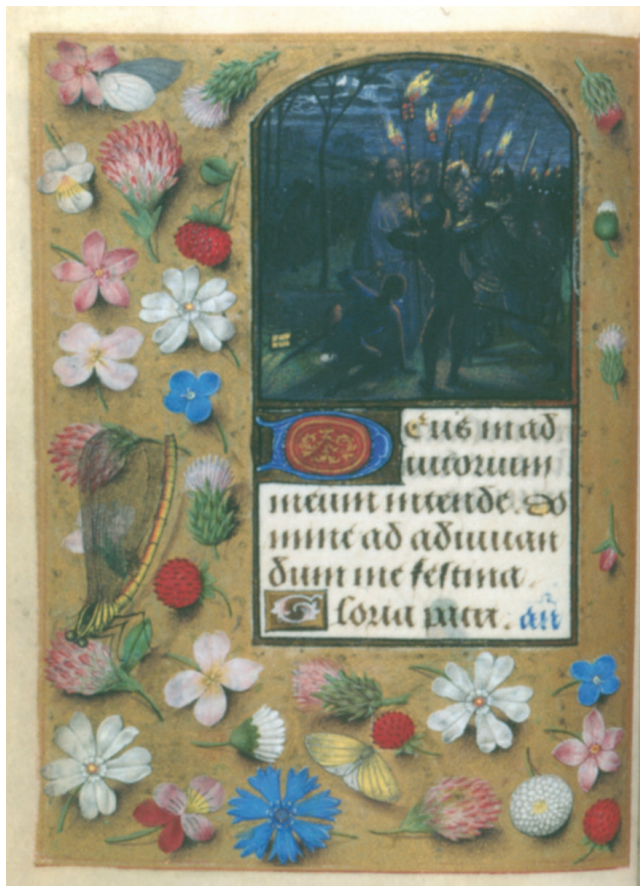 Deus in ad
iutorium
meum intende. Do
mine ad adiuuan
dum me festina.
Gloria patri. añ